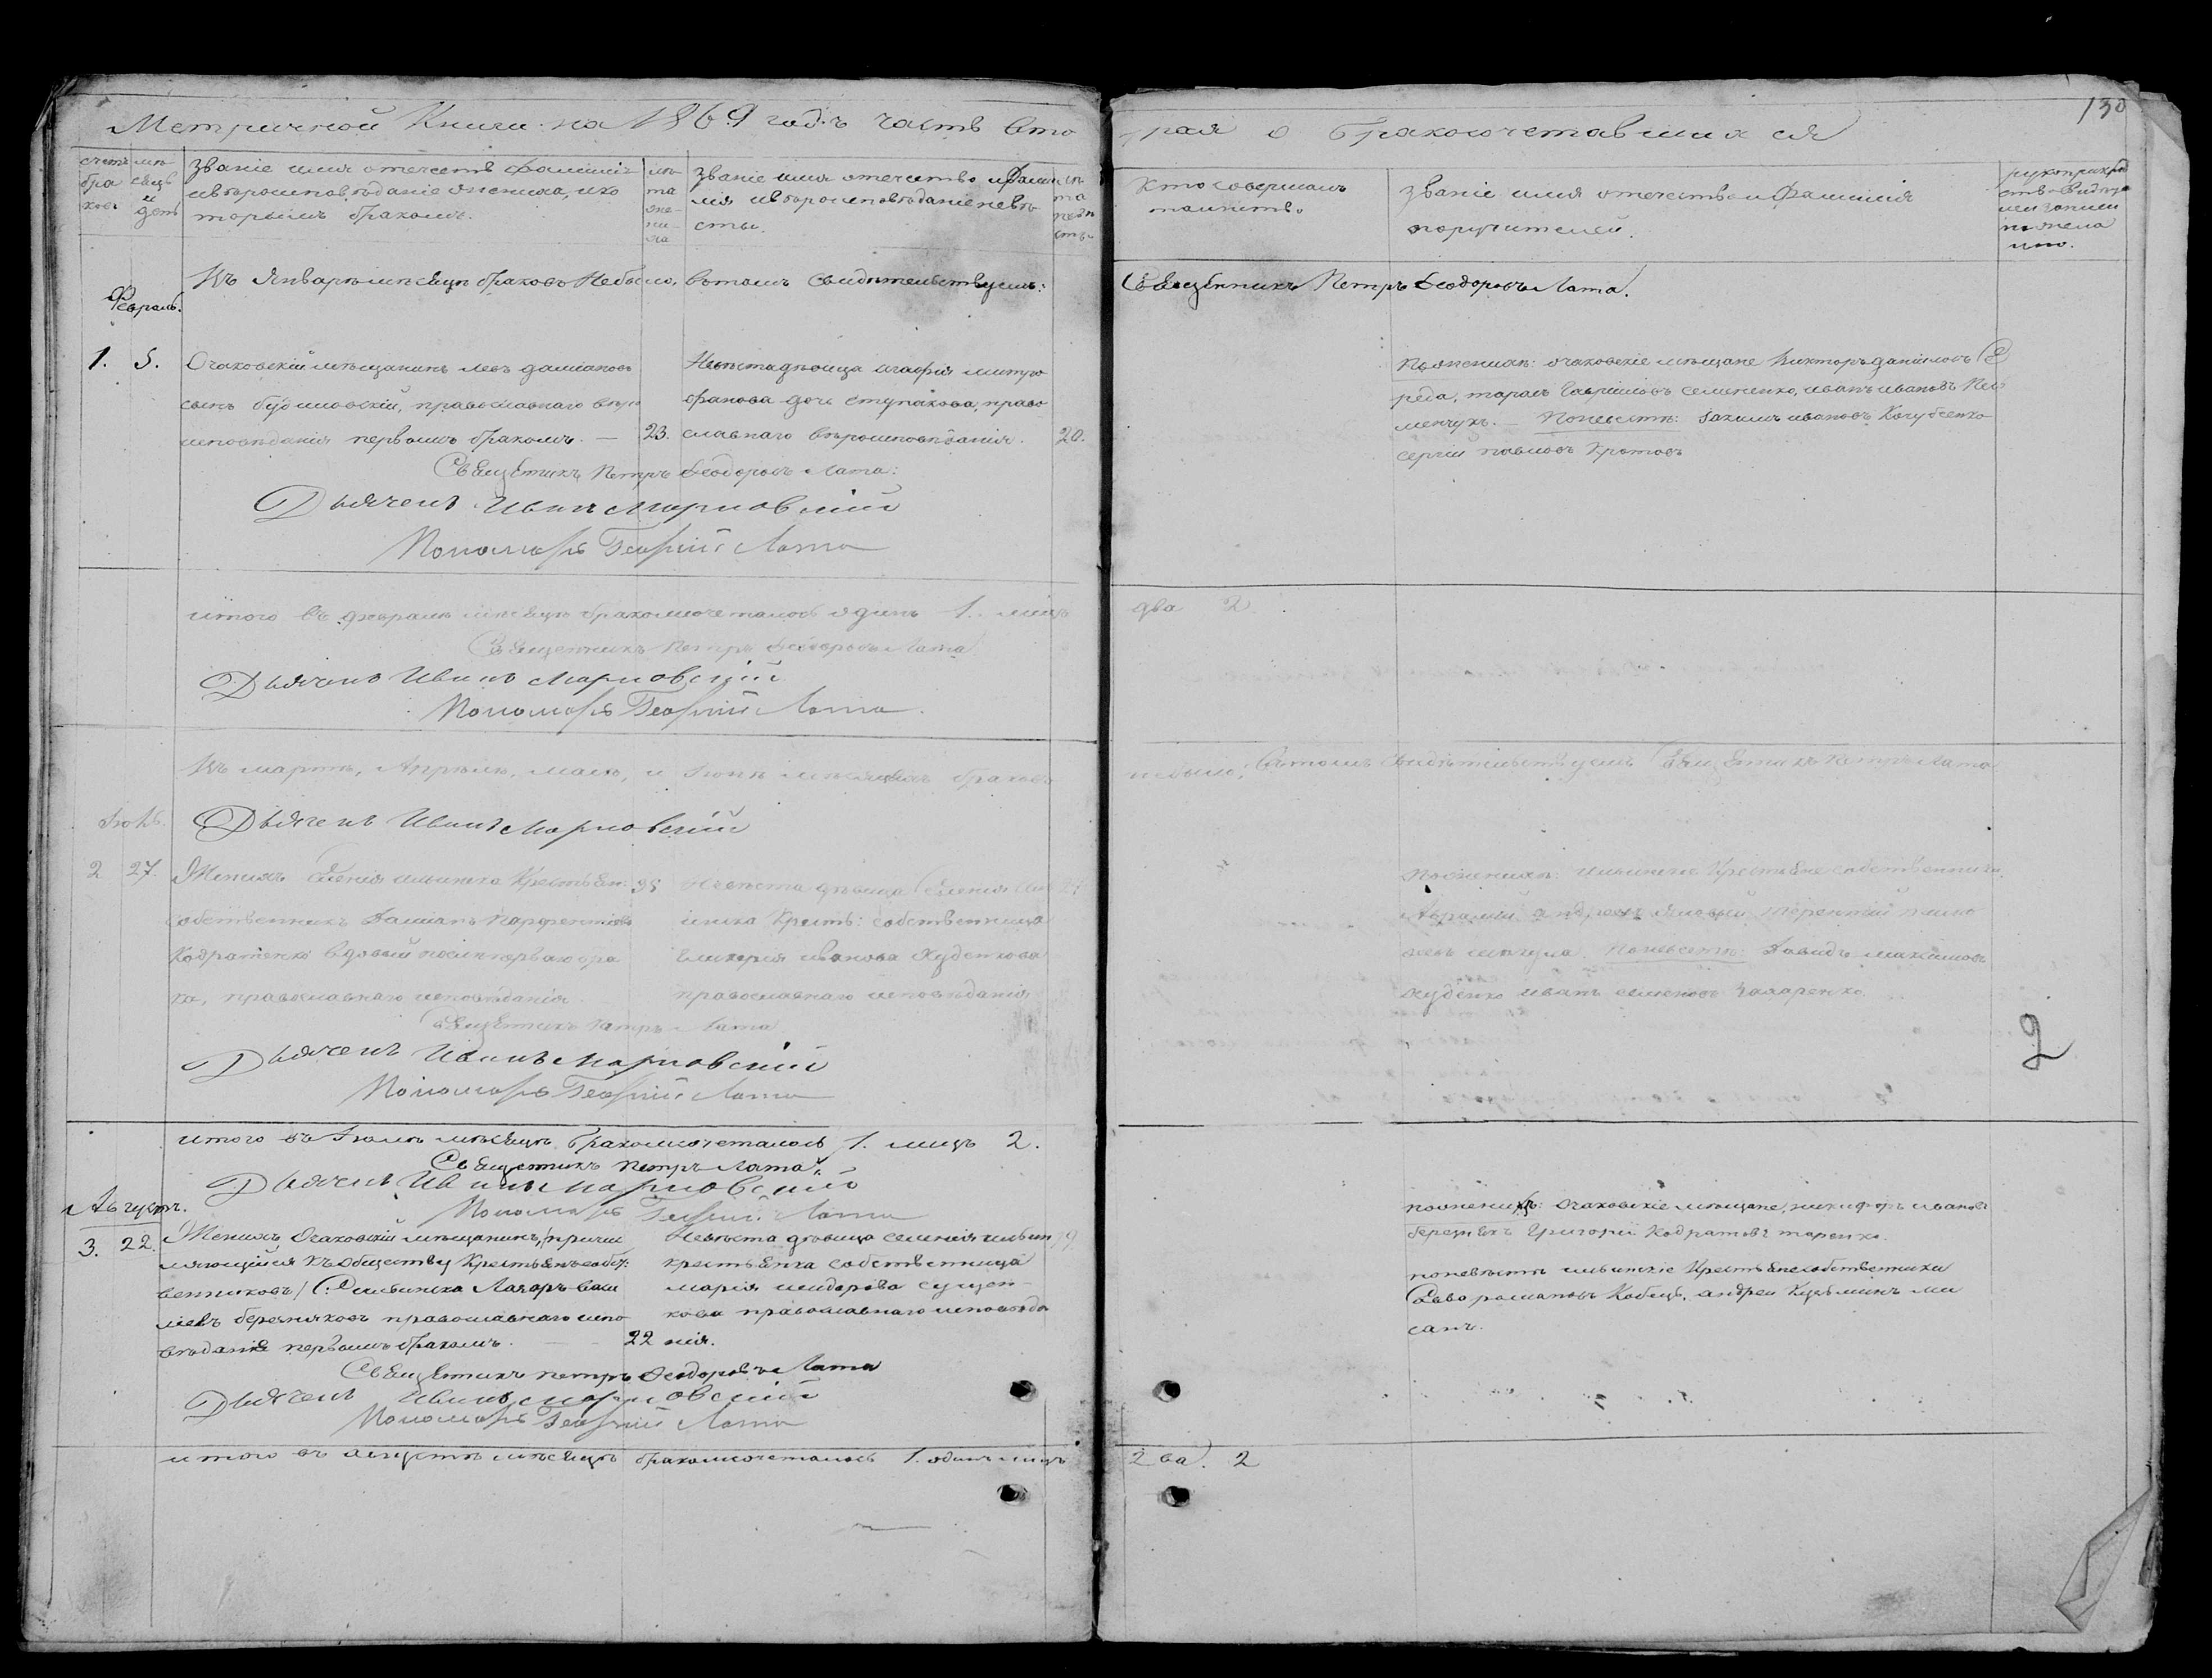 Метричной Книги на 1869 годъ часть вто
рая о бракосочетавшихся
130
счетъ бра ковъ
мѣ сяцъ и день
Званіе имя отечеств фамилія
и вѣроисповѣданіе жениха, и ко
торымъ бракомъ.
лѣ та же ни ха
Званіе имя отечество и фами
лія и вѣроисповѣданіе невѣ
сты.
лѣ та невѣ сты
Кто совершалъ
таинство
Званіе имя отечество и фамилія
поручителей.
Въ Январѣ мѣсяцѣ браковъ небыло, вътомъ свидѣтельствуемъ: Священникъ Петръ Ѳеодоровъ Лата.
Февраль.
1. 5. Очаковскій мѣщанинъ левъ даміановъ
сынъ будиловскій, православнаго вѣро
исповѣданія первымъ бракомъ. — 23.
Невѣста дѣвица агафія митро
фанова дочь ступакова, право
славнаго вѣроисповѣданія. 20.
Поженихѣ: очаковскіе мѣщане Викторъ даніиловъ Се
реда, тарасъ Гавріиловъ семененко, иванъ ивановъ Кле
менчукъ. — Поневѣстѣ: Іакимъ ивановъ Кочубеенко
сергій павловъ Кротовъ
Священникъ Петръ Ѳеодоровъ Лата:
Дьячекъ Иванъ Марковскій
Пономарь Георгій Лата
итого въ февралѣ мѣсяцѣ бракосочеталось одинъ 1. лицъ два 2.
Священникъ Петръ Ѳеодоровъ Лата
Дьячекъ Иванъ Марковскій
Пономарь Георгій Лата.
Въ мартѣ, Апрѣлѣ, маѣ, и Іюнѣ мѣсяцахъ браковъ небыло, вътомъ свидѣтельствуемъ Священникъ Петръ Лата
Іюль.
Дьячекъ Иванъ Марковскій
2 27. Женихъ селенія ильинка Крестьян: 35
собственникъ Даміанъ Парфентіевъ
Кодратенко вдовый послѣ перваго бра
ка, православнаго исповѣданія.
Невѣста дѣвица селенія Иль
инка Крест: собственница
Гликерія иванова Худенкова
православнаго исповѣданія
Поженихѣ: ильинскіе Крестьяне собственники
Поневѣстѣ: Давидъ максимовъ
худенко иванъ семеновъ Захаренко.
Священникъ Петръ Лата
Дьячекъ Иванъ Марковскій
Пономарь Георгій Лата
2
итого въ Іюлѣ мѣсяцѣ бракосочеталось 1. лицъ 2.
Священникъ Петръ Лата.
Дьячекъ Иванъ Марковскій
Пономарь Георгій Лата
Августъ.
3. 22. Женихъ Очаковскій мѣщанинъ, /причи
сляющійся къ обществу Крестьянъ собст:
венниковъ/ С: ильинка Лазарь васи
ліевъ березняковъ православнаго испо
вѣданія первымъ бракомъ. — 22
Невѣста дѣвица селенія ильин 19
крестьянка собственница
марія исидорова сущен-
кова православнаго исповѣда
нія.
поженихѣ: Очаковскіе мѣщане, никифоръ ивановъ
березнякъ Григорій Кодратовъ таренко.
поневѣстѣ ильинскіе Крестьяне собственники
Савва романовъ Кобецъ, андрей Кузьминъ ли
санъ.
Священникъ петръ Ѳеодоровъ Лата
Дьячекъ Иванъ Марковскій
Пономарь Георгій Лата
итого въ августѣ мѣсяцѣ бракосочеталось 1. одинъ лицъ 2 ва. 2